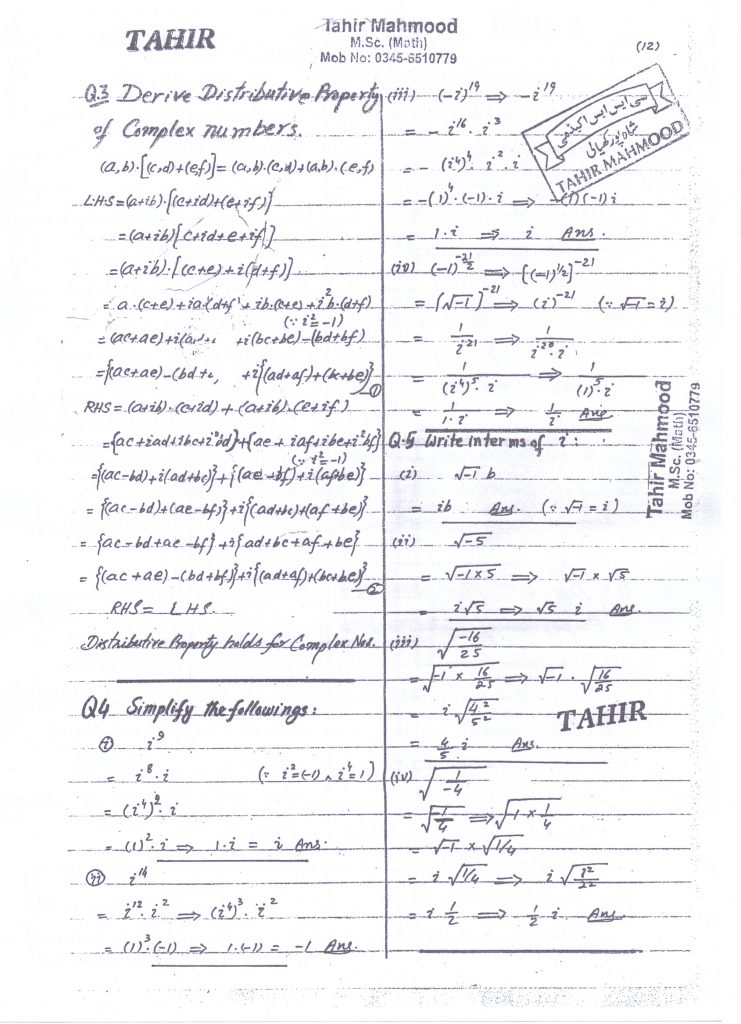 TAHIR
Tahir Mahmood
M.Sc. (Math)
Mob No: 0345-6510779
(12)
Q.3 Derive Distributive Property
of Complex numbers.
(a,b)·[(c,d)+(e,f)] = (a,b)·(c,d)+(a,b)·(e,f)
L.H.S = (a+ib)·[(c+id)+(e+if)]
= (a+ib)[c+id+e+if]
= (a+ib)·[(c+e)+i(d+f)]
= a·(c+e)+ia(d+f + ib·(c+e)+i²b·(d+f)
(∵ i²=-1)
= (ac+ae)+i(a +i(bc+be)-(bd+bf)
= {(ac+ae)-(bd+ +i{(ad+af)+(bc+be)} ①
RHS = (a+ib)·(c+id)+(a+ib)·(e+if)
= {ac+iad+ibc+i²bd}+{ae+iaf+ibe+i²bf}
(∵ i²=-1)
= {(ac-bd)+i(ad+bc)}+{(ae-bf)+i(af+be)}
= {(ac-bd)+(ae-bf)}+i{(ad+bc)+(af+be)}
= {ac-bd+ae-bf}+i{ad+bc+af+be}
= {(ac+ae)-(bd+bf)}+i{(ad+af)+(bc+be)} ②
RHS = LHS.
Distributive Property holds for Complex Nos.
Q4 Simplify the followings:
(i) i⁹
= i⁸·i (∵ i²=(-1) ∧ i⁴=1)
= (i⁴)²·i
= (1)²·i ⇒ 1·i = i Ans.
(ii) i¹⁴
= i¹²·i² ⇒ (i⁴)³·i²
= (1)³·(-1) ⇒ 1·(-1) = -1 Ans.
(iii) (-i)¹⁹ ⇒ -i¹⁹
= -i¹⁶·i³
= -(i⁴)⁴·i²·i
= -(1)⁴·(-1)·i ⇒ -(1)(-1)i
= 1·i ⇒ i Ans.
(iv) (-1)^(-21/2) ⇒ [(-1)^(1/2)]^(-21)
= (√-1)^(-21) ⇒ (i)^(-21) (∵ √-1 = i)
= 1/i²¹ ⇒ 1/(i²⁰·i)
= 1/((i⁴)⁵·i) ⇒ 1/((1)⁵·i)
= 1/(1·i) ⇒ 1/i Ans
Q.5 Write in terms of i:
(i) √-1 b
= ib Ans. (∵ √-1 = i)
(ii) √-5
= √(-1×5) ⇒ √-1 × √5
= i√5 ⇒ √5 i Ans
(iii) √(-16/25)
= √(-1 × 16/25) ⇒ √-1 · √(16/25)
= i √(4²/5²)
= 4/5 i Ans.
(iv) √(1/-4)
= √(-1/4) ⇒ √(-1 × 1/4)
= √-1 × √(1/4)
= i √(1/4) ⇒ i √(1²/2²)
= i 1/2 ⇒ 1/2 i Ans.
سی ایس ایس اکیڈمی
TAHIR MAHMOOD
Tahir Mahmood
M.Sc. (Math)
Mob No: 0345-6510779
TAHIR